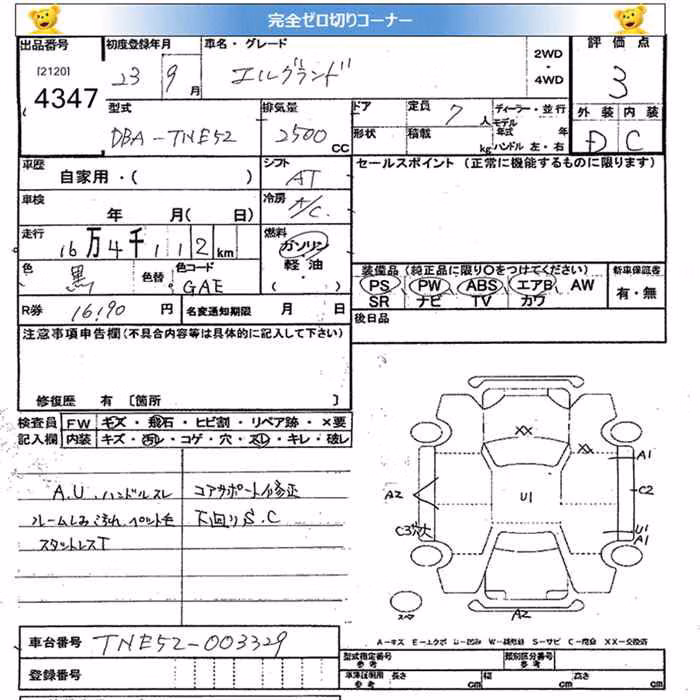 完全ゼロ切りコーナー
出品番号 初度登録年月 車名・グレード 2WD・4WD 評価点
[2120]
4347
23 9月 エルグランド 3
型式 排気量 ドア 定員 7人 ディーラー・並行 外装 内装
モデル年式 年
DBA-TNE52 2500CC 形状 積載 kg ハンドル 左・右 D C
車歴 シフト セールスポイント (正常に機能するものに限ります)
自家用・( ) AT
車検 冷房
年 月( 日) A/C
走行 燃料
16万4千112km ガソリン・軽油・( )
色 黒 色替 色コード GAE
装備品 (純正品に限り○をつけてください) 新車保証書
PS PW ABS エアB AW 有・無
SR ナビ TV カワ
R券 16190円 名変通知期限 月 日
後日品
注意事項申告欄(不具合内容等は具体的に記入して下さい)
修復歴 有 〔箇所 〕
検査員 FW キズ・飛石・ヒビ割・リペア跡・×要
記入欄 内装 キズ・汚レ・コゲ・穴・スレ・キレ・破レ
A.U.ハンドルスレ コアサポート修正
ルームしみ汚れ、ペット毛 下回りS.C
スタットレスT
XX
XX
A1
A2 U1 C2
C3穴大 U1
A1
スペア
A2
A-キズ E-エクボ U-凹み W-補修跡 S-サビ C-腐食 XX-交換済
車台番号 TNE52-003329
型式指定番号 参考 類別区分番号 参考
登録番号
車庫証明用 参考 長さ cm 幅 cm 高さ cm